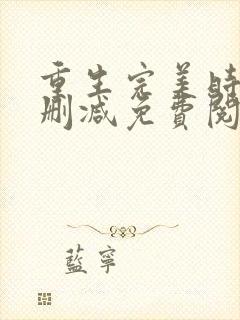 重生完美時
刪減免費閱
藍寧